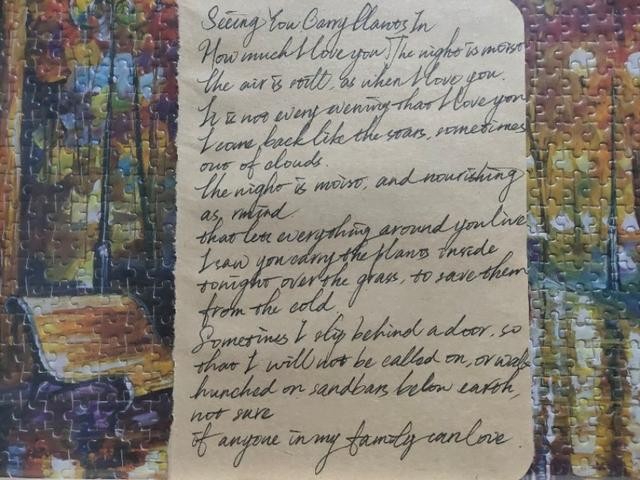 Seeing You Carry Plants In
How much I love you. The night is moist
the air is still, as when I love you.
It is not every evening that I love you
I come back like the stars, sometimes
out of clouds.
the night is moist, and nourishing
as, mind
that lets everything around you live
I saw you carry the plants inside
tonight over the grass, to save them
from the cold.
Sometimes I slip behind a door, so
that I will not be called on, or walk
hunched on sandbars below earth,
not sure
if anyone in my family can love.